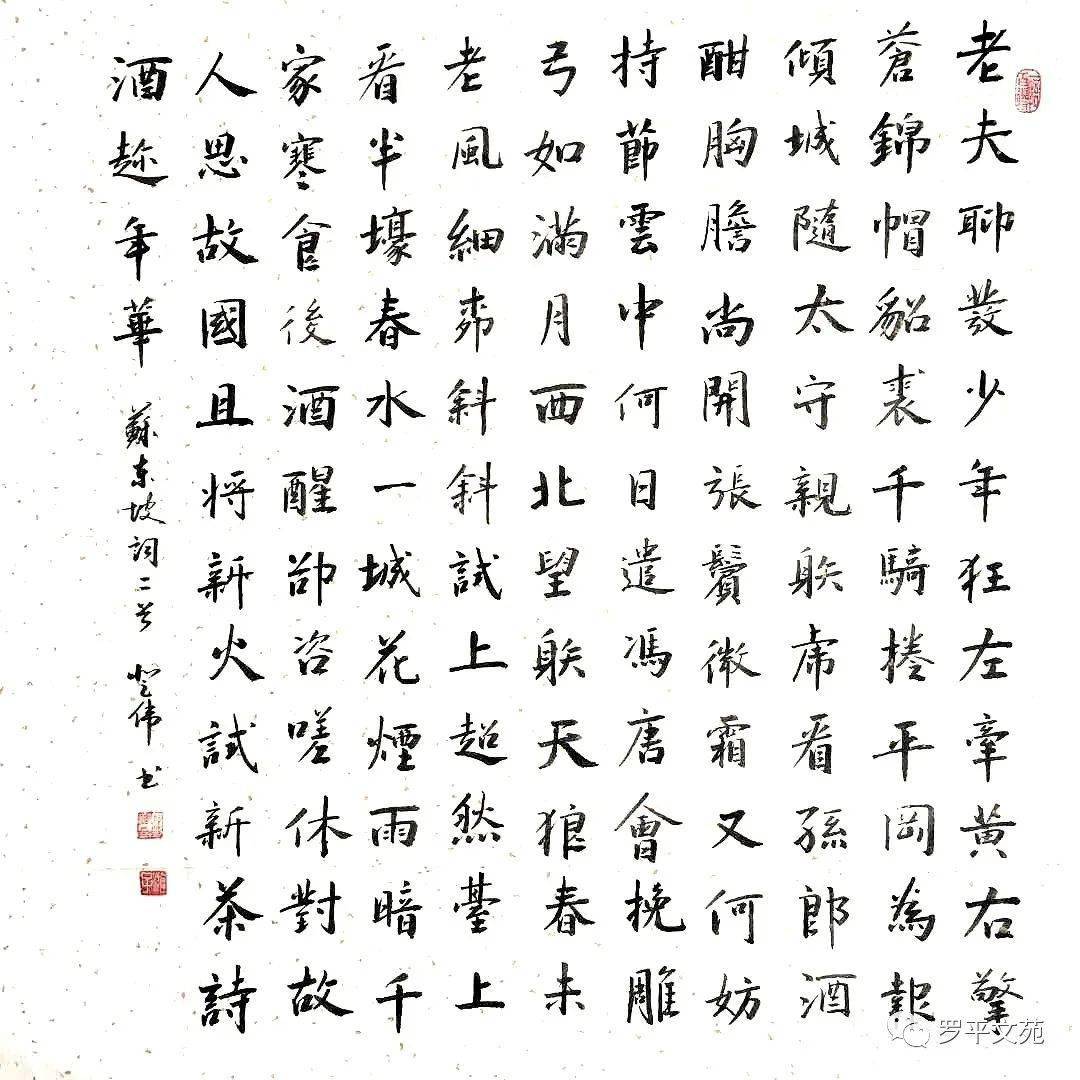 老夫聊發少年狂左牽黃右擎
蒼錦帽貂裘千騎捲平岡為報
傾城隨太守親射虎看孫郎酒
酣胸膽尚開張鬢微霜又何妨
持節雲中何日遣馮唐會挽雕
弓如滿月西北望射天狼春未
老風細柳斜斜試上超然臺上
看半壕春水一城花煙雨暗千
家寒食後酒醒卻咨嗟休對故
人思故國且將新火試新茶詩
酒趁年華
蘇東坡詞二首 登伟书
罗平文苑